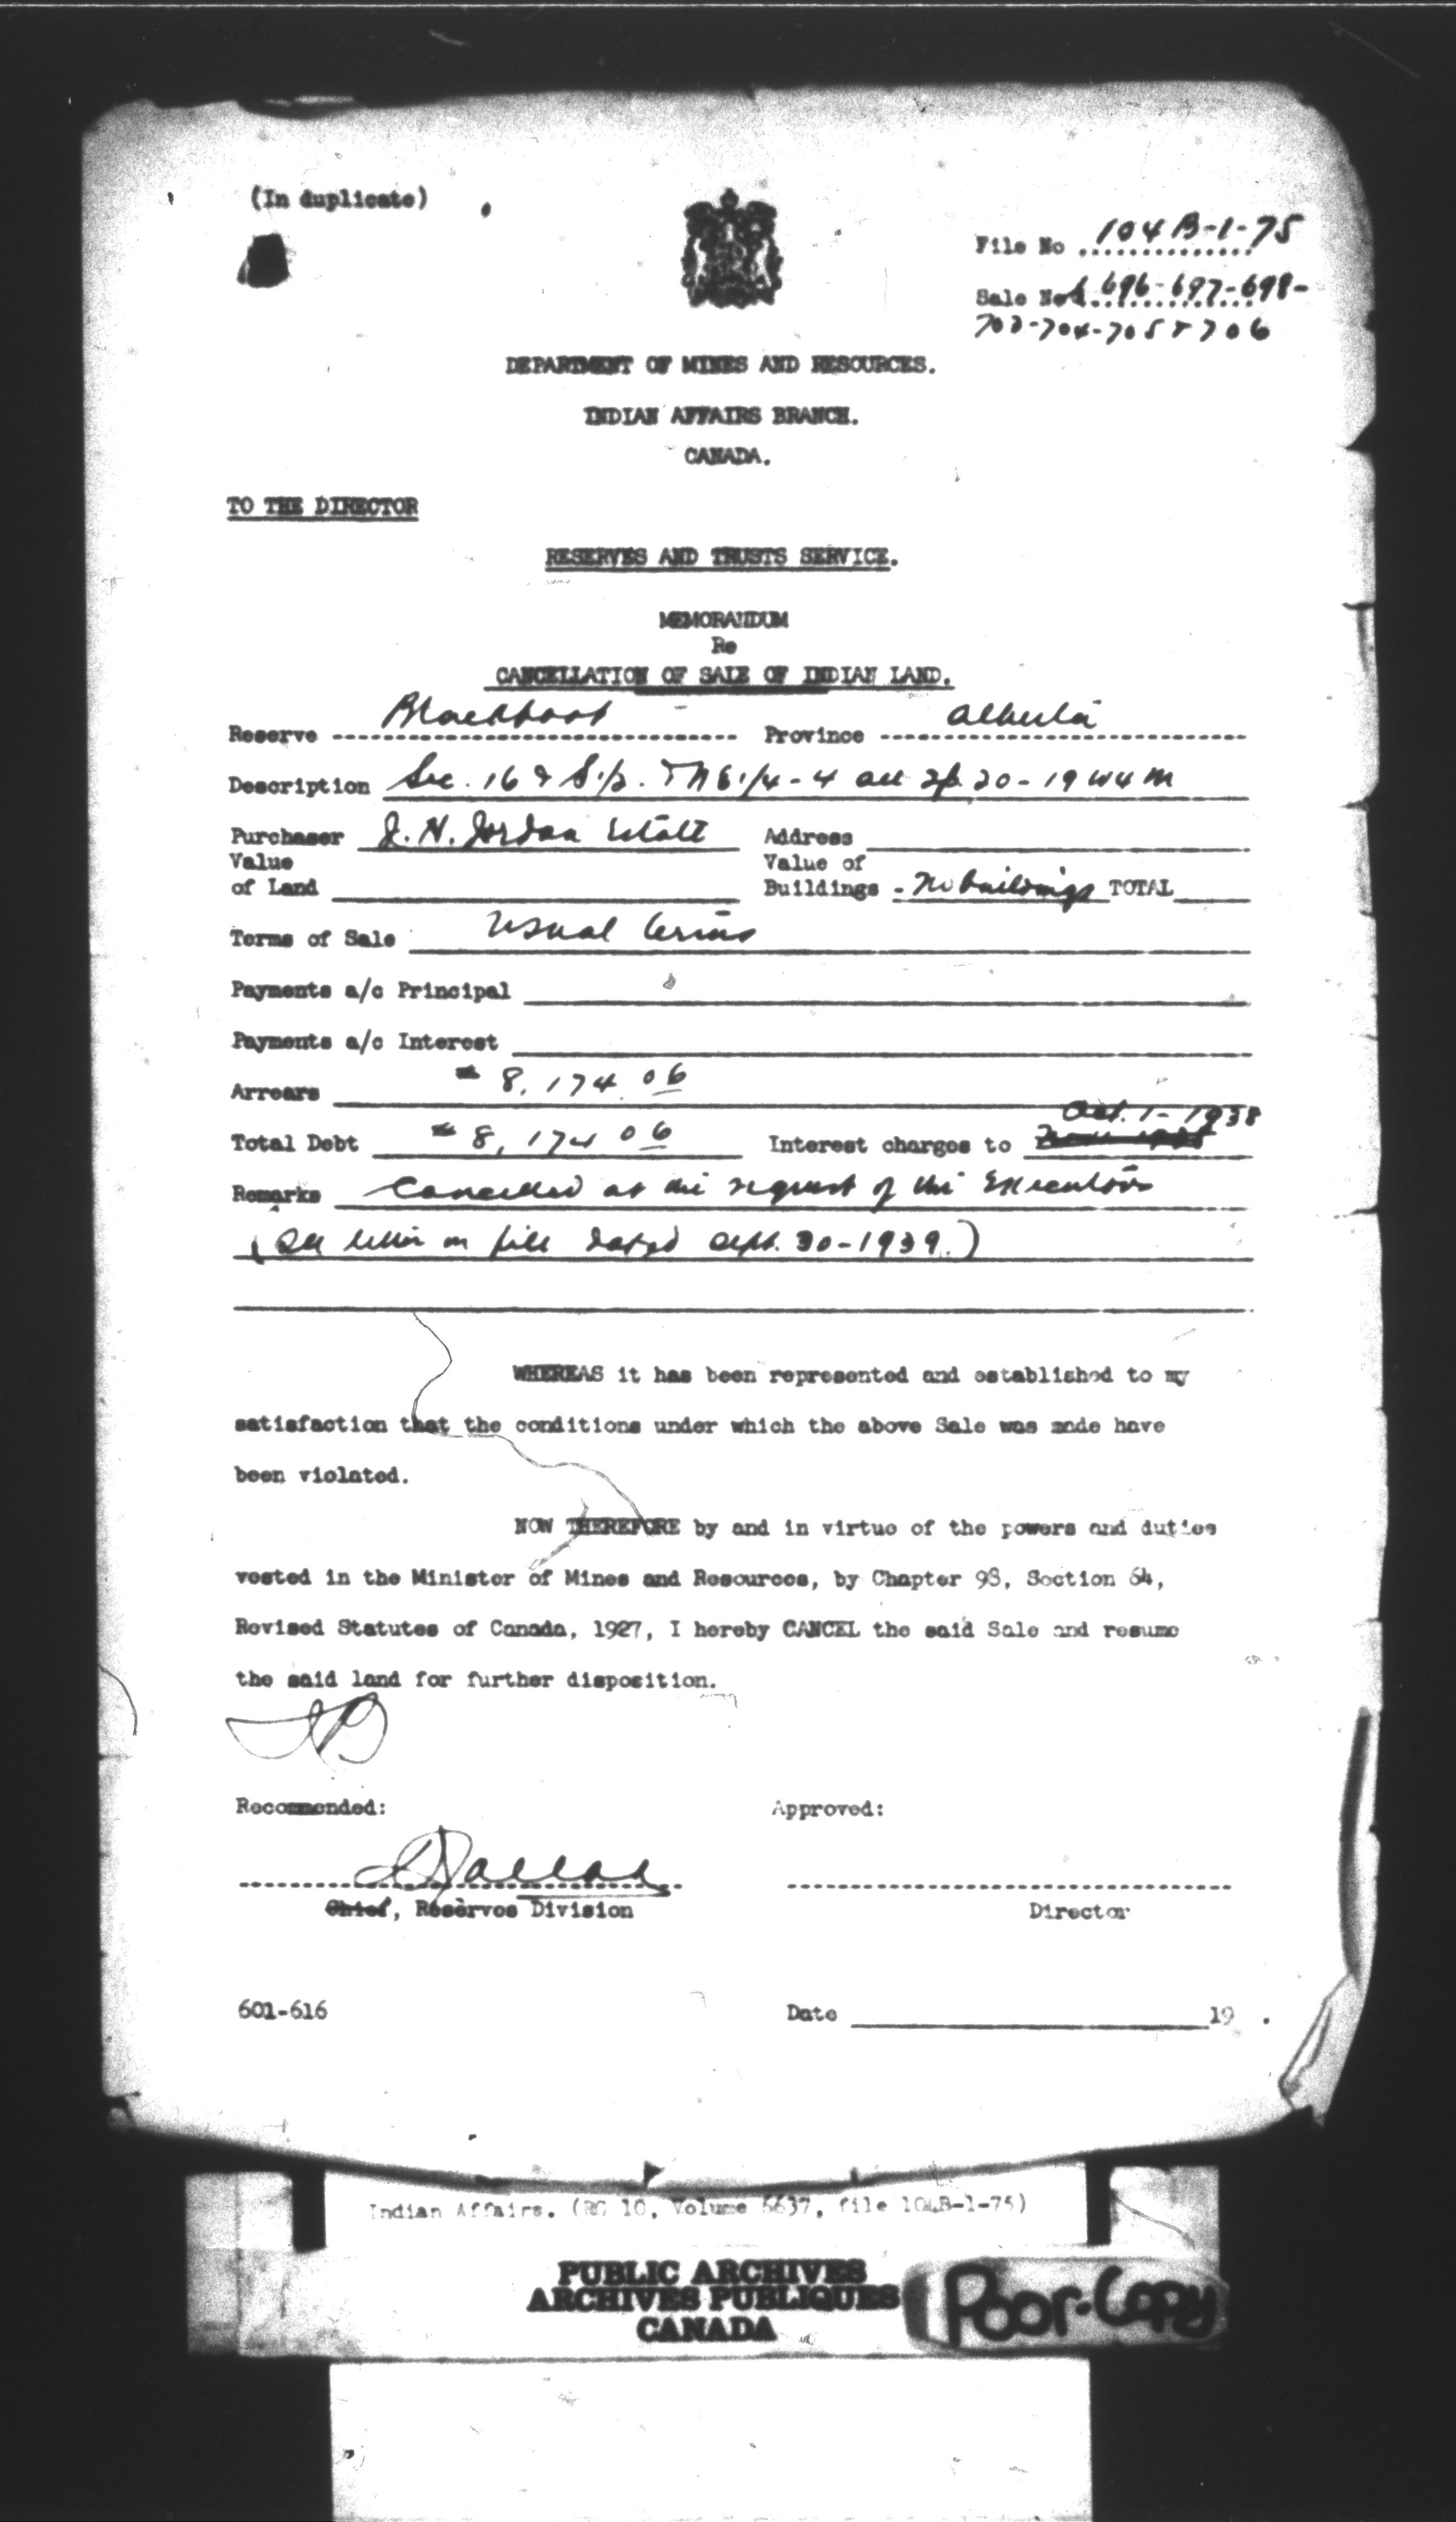 (In duplicate)
File No 104 B-1-75
Sale Nos. 696-697-698-
703-704-705 & 706
DEPARTMENT OF MINES AND RESOURCES.
INDIAN AFFAIRS BRANCH.
CANADA.
TO THE DIRECTOR
RESERVES AND TRUSTS SERVICE.
MEMORANDUM
Re
CANCELLATION OF SALE OF INDIAN LAND.
Reserve Blackfoot Province Alberta
Description Sec. 16 & S.1/2. & N E.1/4 - 4 all Tp. 20 - 19 W 4 M
Purchaser J. H. Jordan Estate Address
Value Value of
of Land Buildings - No buildings TOTAL
Terms of Sale Usual terms
Payments a/c Principal
Payments a/c Interest
Arrears $ 8,174.06
Oct. 1 - 1938
Total Debt $ 8,174 06 Interest charges to
Remarks Cancelled at the request of the Executors
(See letter on file dated Sept. 30-1939.)
WHEREAS it has been represented and established to my
satisfaction that the conditions under which the above Sale was made have
been violated.
NOW THEREFORE by and in virtue of the powers and duties
vested in the Minister of Mines and Resources, by Chapter 98, Section 64,
Revised Statutes of Canada, 1927, I hereby CANCEL the said Sale and resume
the said land for further disposition.
Recommended: Approved:
Chief, Reserves Division Director
601-616 Date 19 .
Indian Affairs. (RG 10, Volume 6637, file 104B-1-75)
PUBLIC ARCHIVES
ARCHIVES PUBLIQUES
CANADA
Poor-Copy